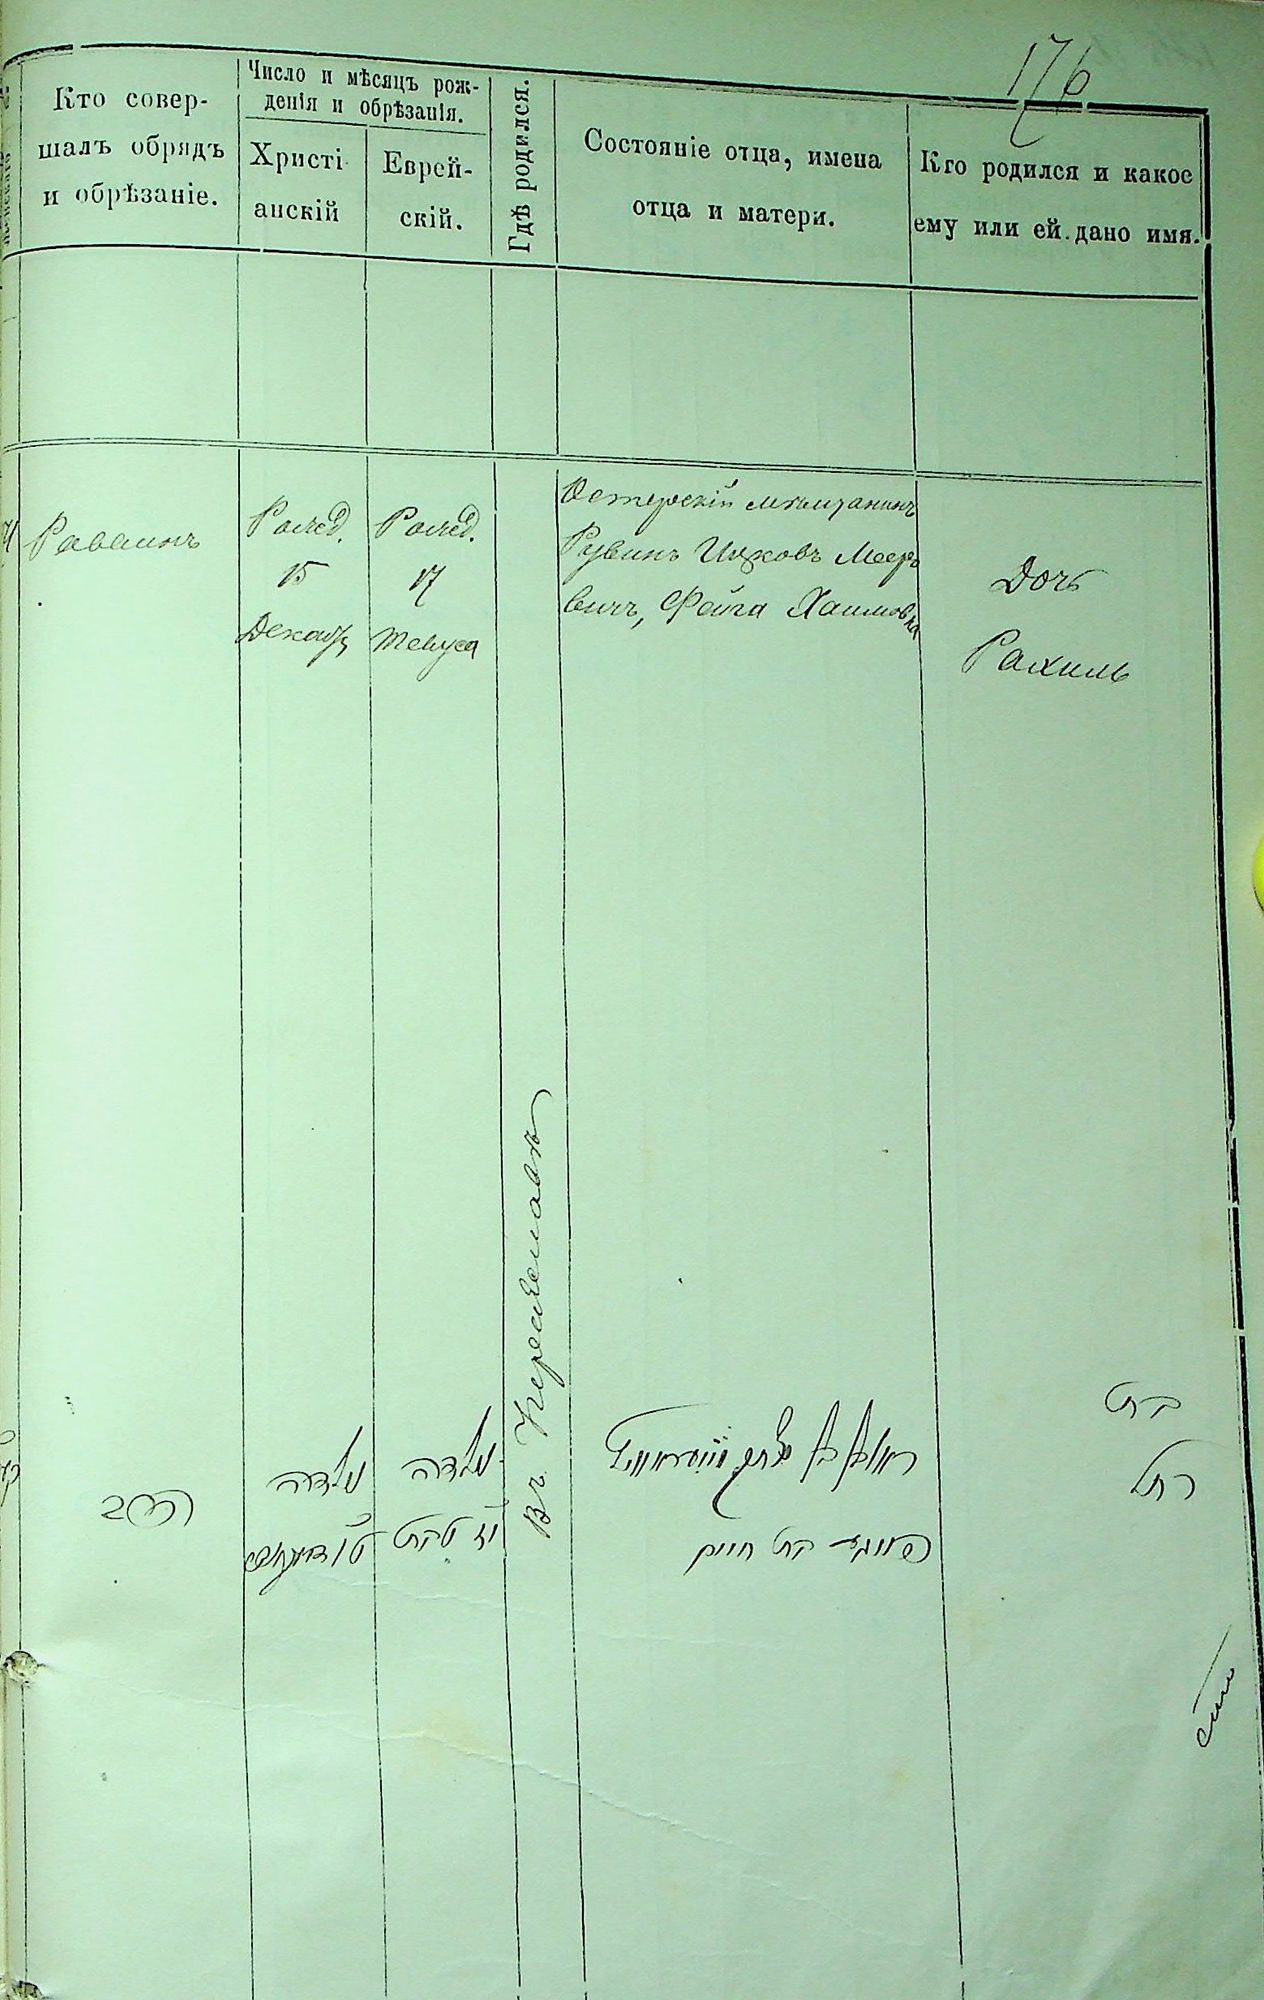 176
Кто совер-
шалъ обрядъ
и обрѣзаніе.
Число и мѣсяцъ рож-
денія и обрѣзанія.
Христі-
анскій
Еврей-
скій.
Гдѣ родился.
Состояніе отца, имена
отца и матери.
Кто родился и какое
ему или ей дано имя.
Раввинъ
Рожд.
15
Декабр
Рожд.
17
Тевуса
Въ Переяславѣ
Остерскій мѣщанинъ
Рувинъ Ицковъ Меер
вичъ, Фейга Хаимовна
Дочь
Рахиль
הרב
נולדה
נולדה
יז טבת
ראובן בן יצחק
פייגע בת חיים
בת
רחל